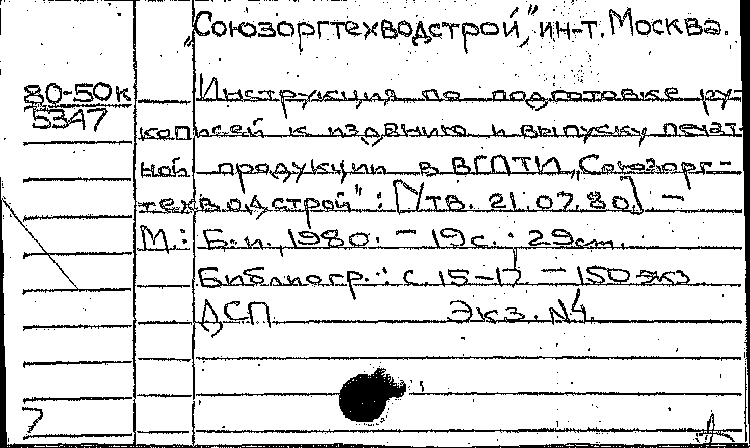 „Союзоргтехводстрой", ин-т. Москва.
80-50к
5347
Инструкция по подготовке ру-
кописей к изданию и выпуску печат-
ной продукции в ВГПТИ „Союзорг-
техводстрой": [Утв. 21.07.80] —
М.: Б.и., 1980. — 19с.; 29см.
Библиогр.: с. 15-17. — 150 экз
ДСП Экз. №4.
7